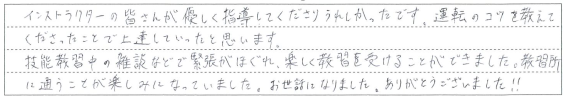 インストラクターの皆さんが優しく指導してくださりうれしかったです。運転のコツを教えて
くださったことで上達していったと思います。
技能教習中の雑談などで緊張がほぐれ、楽しく教習を受けることができました。教習所
に通うことが楽しみになっていました。お世話になりました。ありがとうございました!!